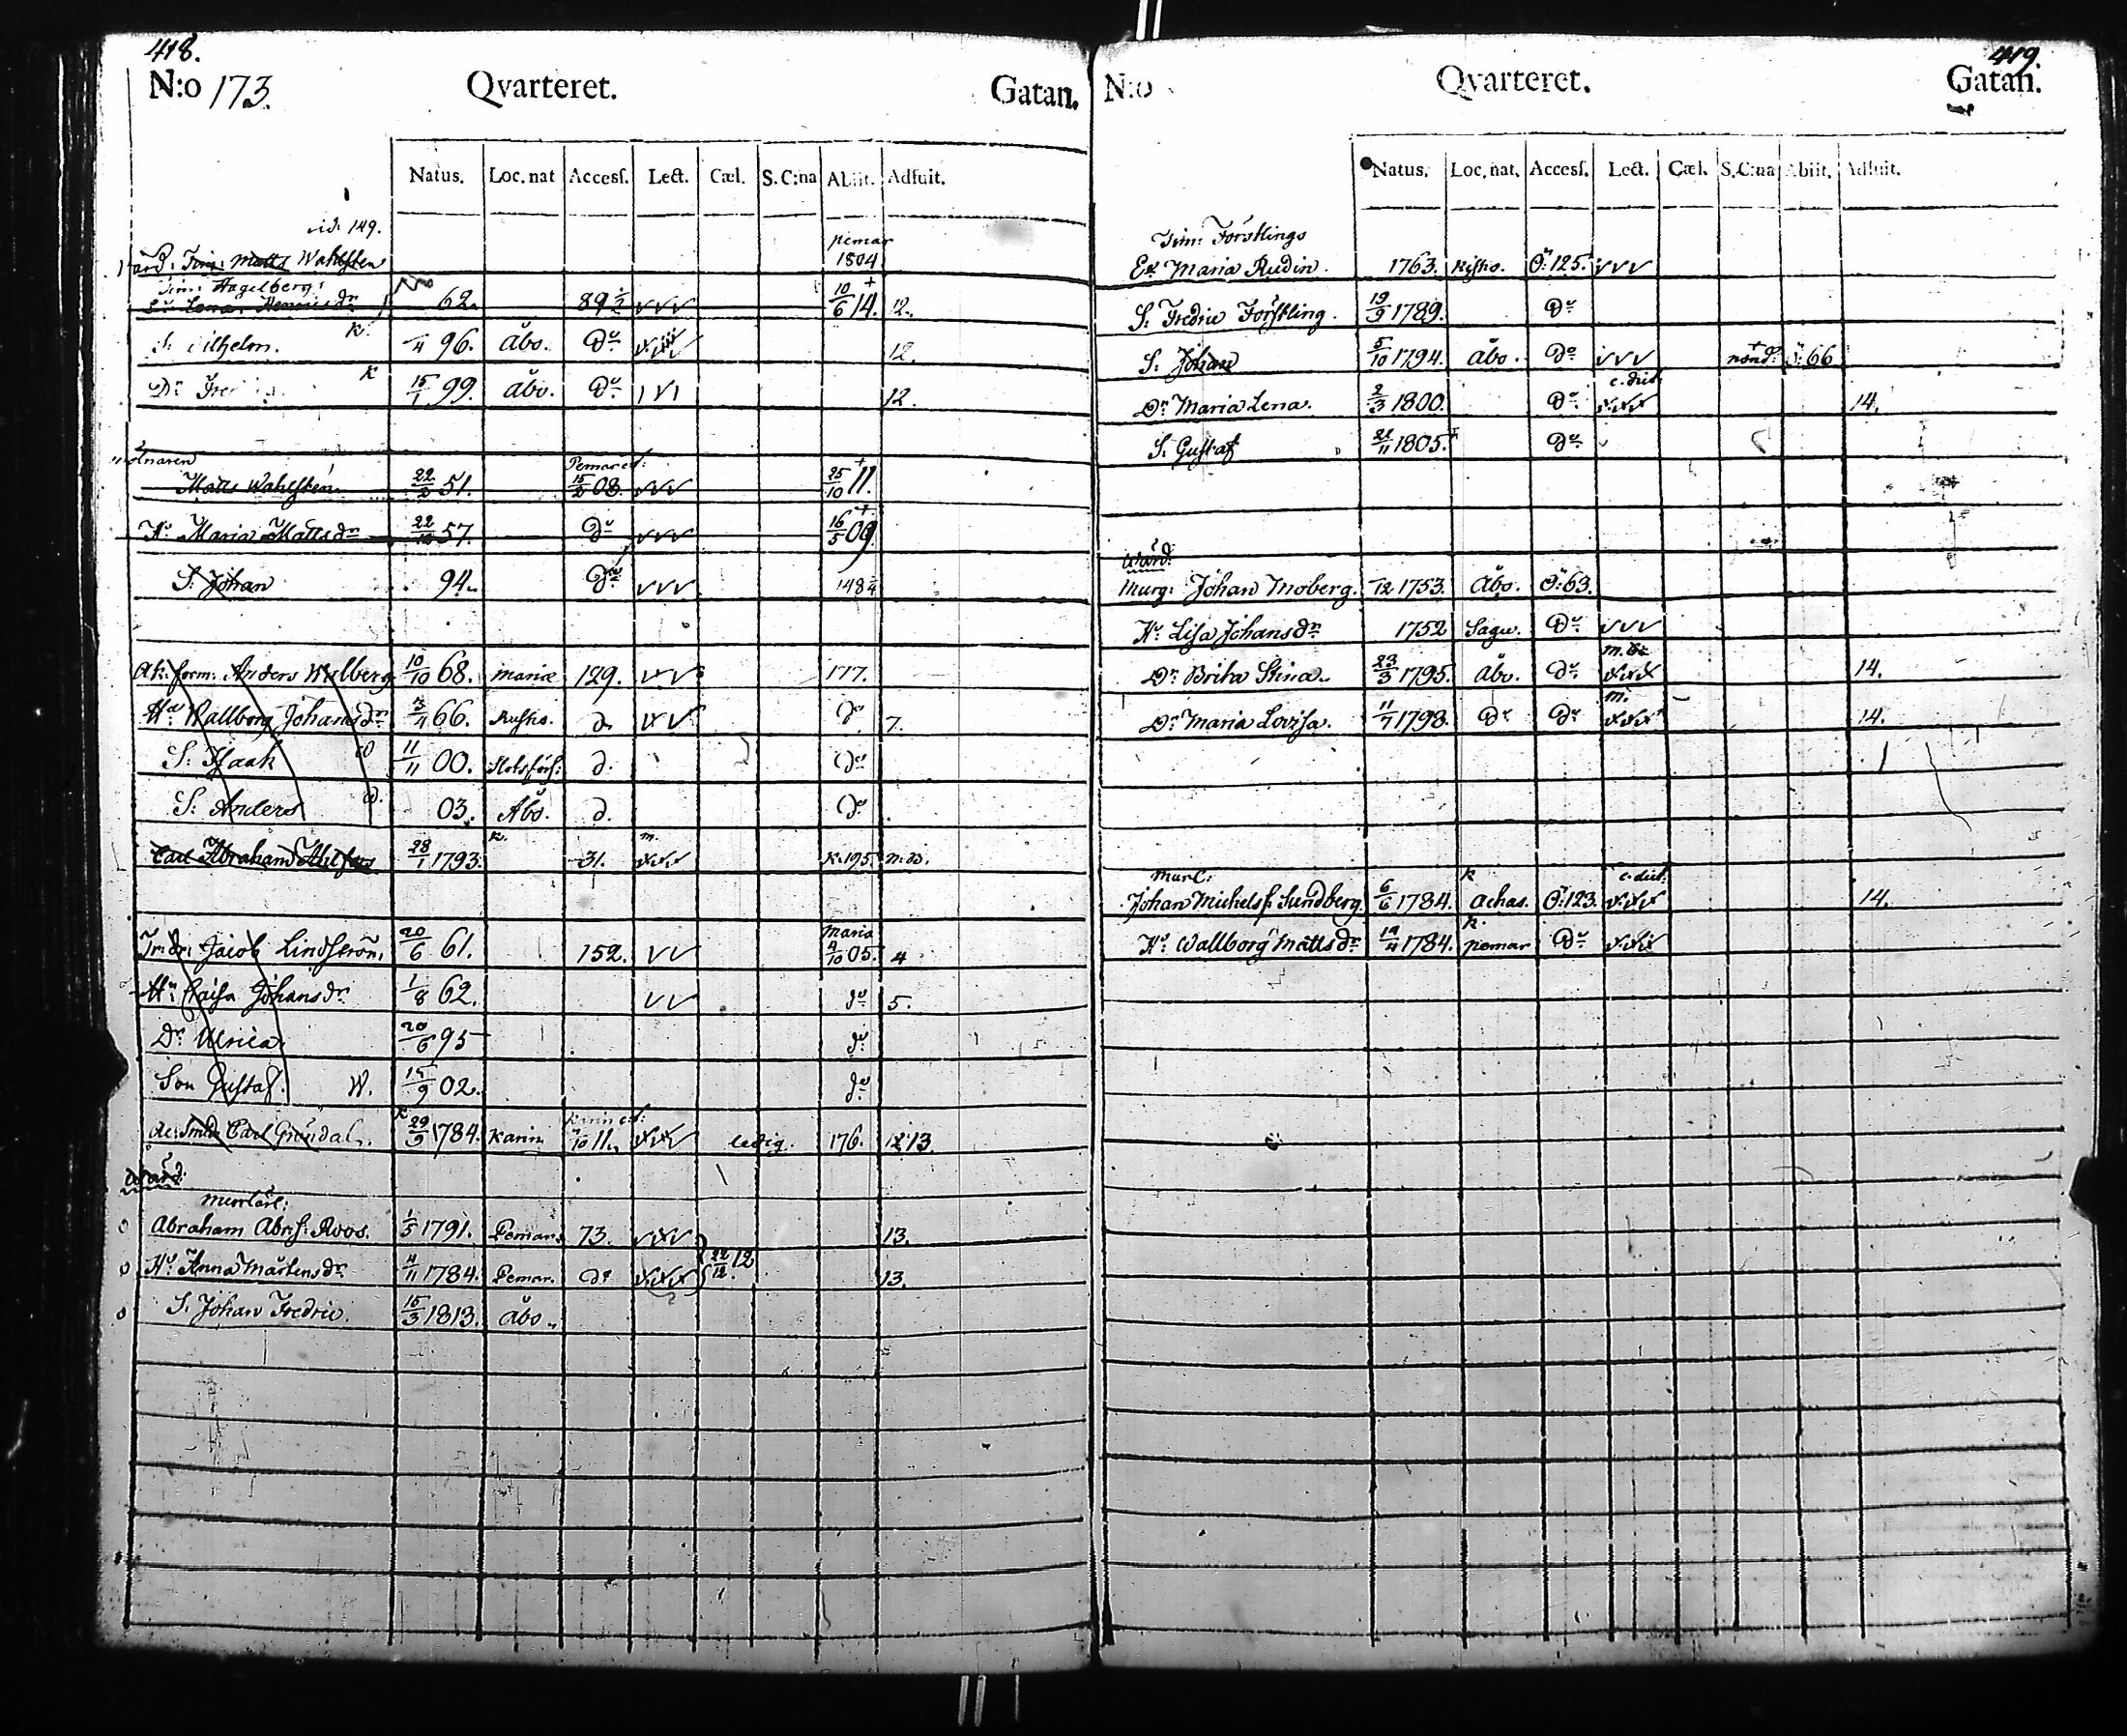 418.
N:o 173. Qvarteret. Gatan.
Natus. Loc. nat Accesſ. Lect. Cæl. S. C:na Abiit. Adfuit.
vid. 149.
Matts Wahlsten pemar 1804
Tim: Hagelberg:
E:a Lena Henricsdr 62. 89½ vvv 10/6 14. + 12.
S. Wilhelm. k. /4 96. Åbo. Do 12.
Dr Fred k 15/1 99. Åbo. Do 12.
Matts Wahlsten 22/2 51. Pemar et: 15/2 08. vvv 25/10 11. +
Hu Maria Mattsdr 22/10 57. Do vvv 16/5 09 +
S. Johan 94. Do vvv 148½
Ak: form: Anders Wulberg 10/10 68. Mariæ 129. vvv 177.
Hu Wallborg Johansdr /11 66. Rusko. d. do 7.
S. Isaak 11/11 00. d. do
S. Anders 03. Åbo. d. do
Carl Abraham 28/1 1793. k. 31. m. vvv k. 195.
Jacob Lindström 20/6 61. 152. vv Maria 4/10 05. 4
Hu Caisa Johansdr 1/8 62. vv do 5.
Dr Ulrica 20/6 95 do
Son Gustaf. W. 15/9 02. do
Carl Gröndal. k 29/9 1784. Karin. Karin et: /10 11. vvv ledig. 176. 12 13.
Wård:
murlärl:
Abraham Abrs: Roos. 1/5 1791. Pemar. 73. vvv 13.
Hu Anna Mårtensdr 4/11 1784. Pemar. do vvv 22/12 12. 13.
S. Johan Fredric. 15/3 1813. Åbo.
419.
N:o Qvarteret. Gatan.
Natus. Loc. nat. Accesſ. Lect. Cæl. S.C:na Abiit. Adfuit.
Tim: Förstlings
E:a Maria Rudin. 1763. Kisko. Ö: 125. vvv
S. Fredric Förstling. 19/9 1789. Do
S. Johan 5/10 1794. Åbo. Do vvv nond: Ö: 66
Dr Maria Lena. 2/3 1800. Do c. dist vvv 14.
S. Gustaf 21/11 1805. + Do
Wård:
Murg: Johan Moberg. /12 1753. Åbo. Ö: 63.
Hu Lisa Johansdr 1752 Sagu. Do vvv
Dr Brita Stina. 23/3 1795. Åbo. Do vvv 14.
Dr Maria Lovisa. 11/7 1798. Do Do m. vvv 14.
Murl:
Johan Michelss: Sundberg. 6/6 1784. k achas. Ö: 123. c. dist: vvv 14.
Hu Wallborg Mattsdr 14/4 1784. k. pemar Do vvv